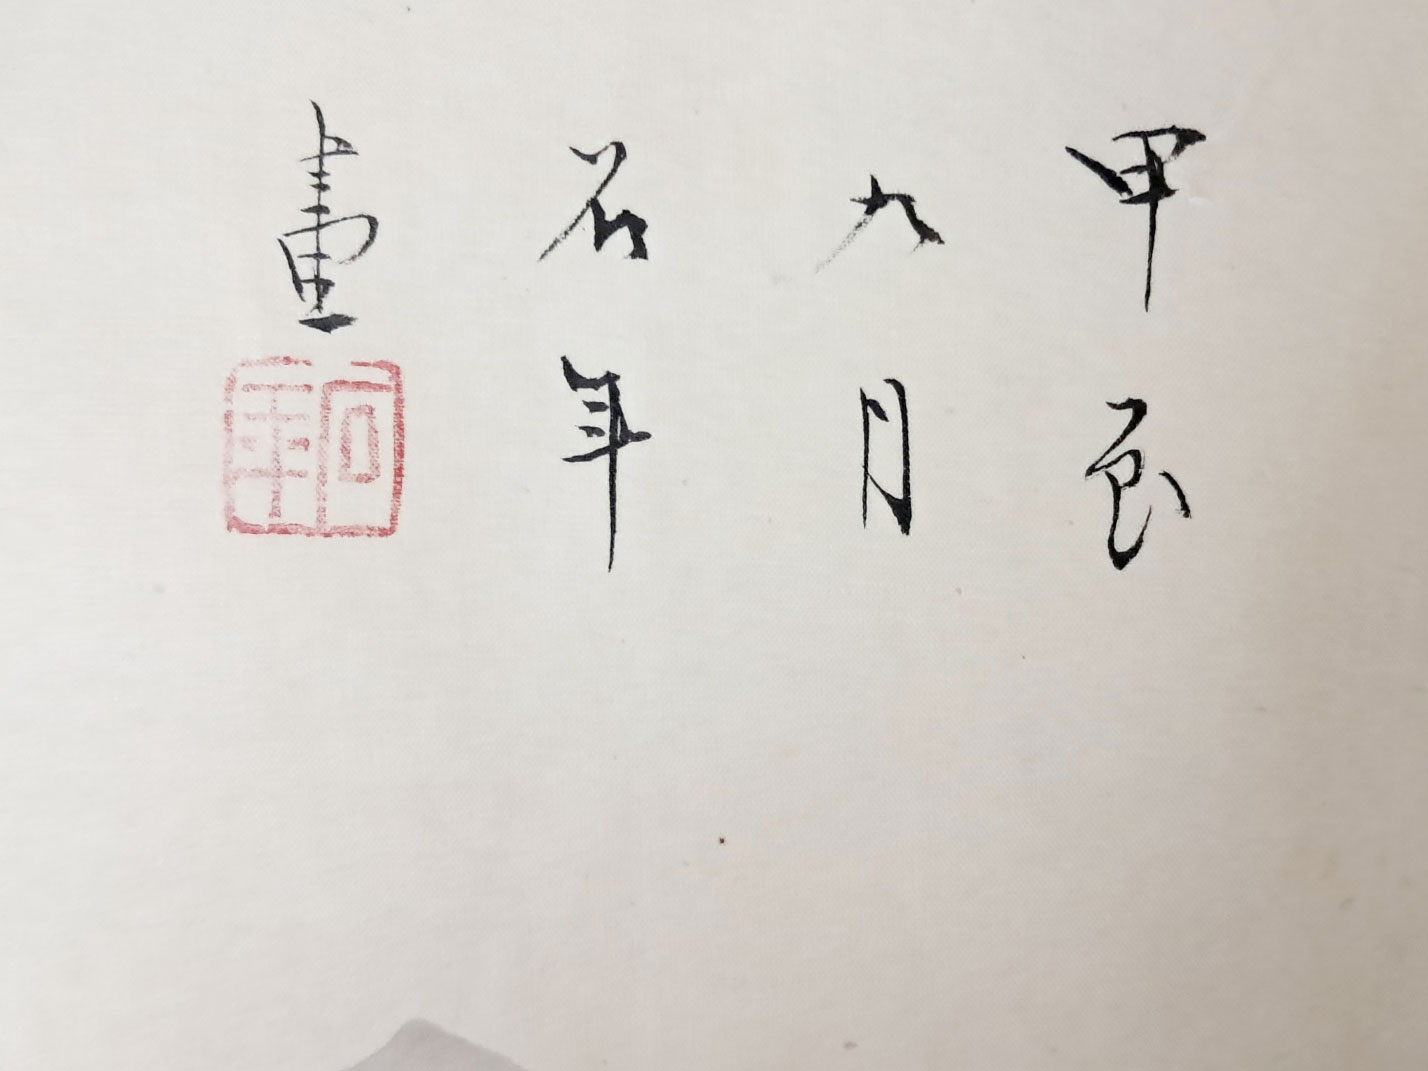 甲辰
九月
石年
畫
石年